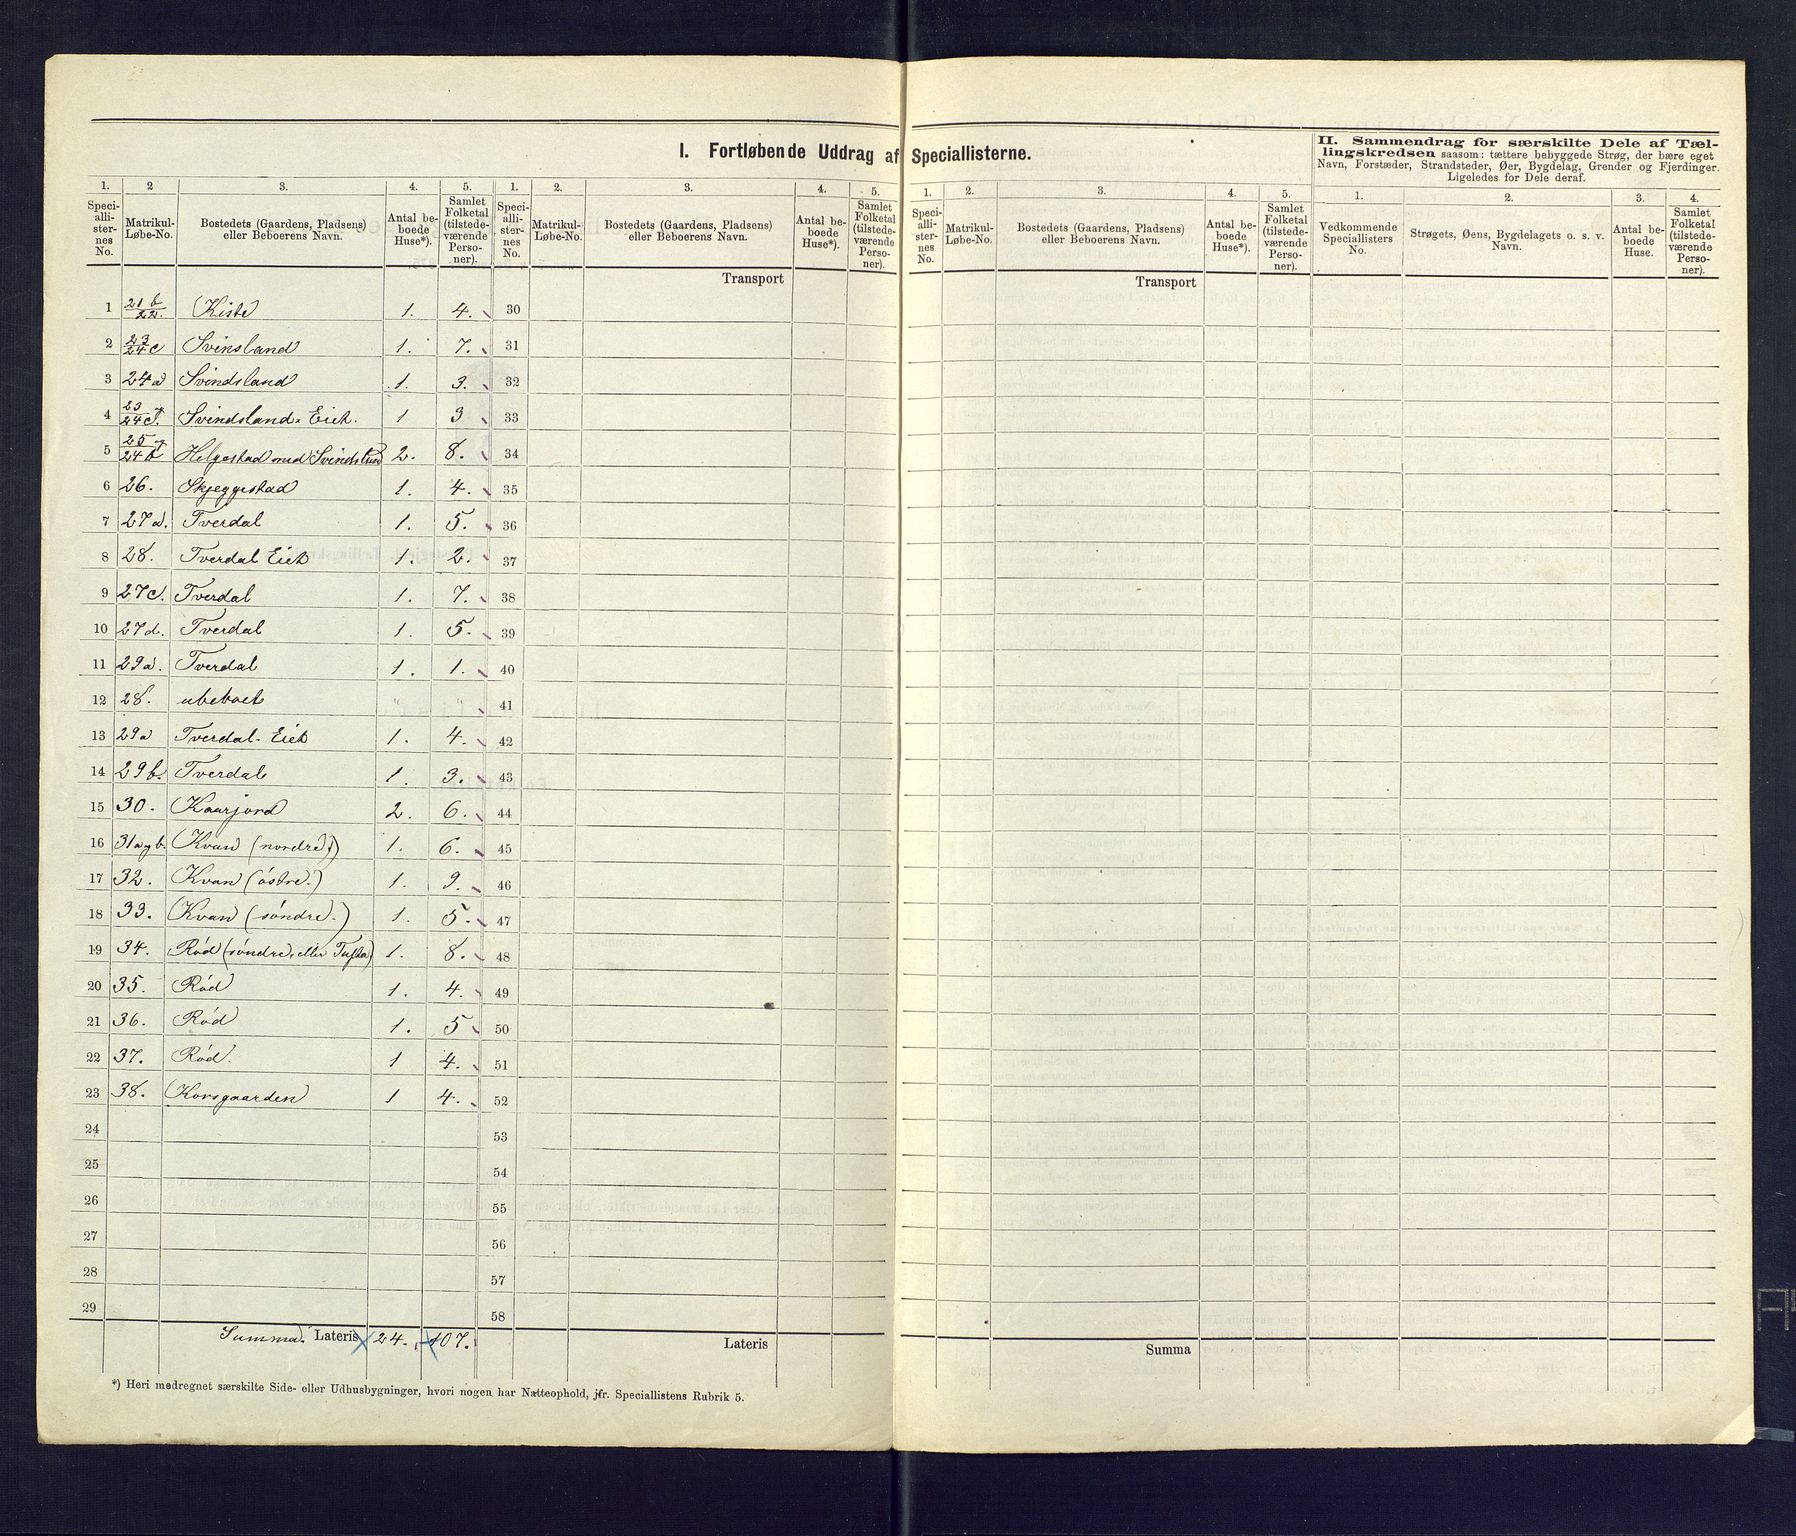 I. Fortløbende Uddrag af Speciallisterne.
II. Sammendrag for særskilte Dele af Tællingskredsen saasom: tættere bebyggede Strøg, der bære eget
Navn, Forstæder, Strandsteder, Øer, Bygdelag, Grender og Fjerdinger.
Ligeledes for Dele deraf.
1. 2 3. 4. 5. 1. 2. 3. 4. 5. 1. 2. 3. 4. 5. 1. 2. 3. 4.
Speciallisternes No. Matrikul-Løbe-No. Bostedets (Gaardens, Pladsens) eller Beboerens Navn. Antal beboede Huse*). Samlet Folketal (tilstedeværende Personer).
Speciallisternes No. Matrikul-Løbe-No. Bostedets (Gaardens, Pladsens) eller Beboerens Navn. Antal beboede Huse*). Samlet Folketal (tilstedeværende Personer).
Speciallisternes No. Matrikul-Løbe-No. Bostedets (Gaardens, Pladsens) eller Beboerens Navn. Antal beboede Huse*). Samlet Folketal (tilstedeværende Personer).
Vedkommende Speciallisters No. Strøgets, Øens, Bygdelagets o. s. v. Navn. Antal beboede Huse. Samlet Folketal (tilstedeværende Personer).
Transport Transport
1 21b/22. Kiste 1. 4. 30
2 23/24c Svinsland 1. 7. 31
3 24a Svindsland 1. 3. 32
4 23/24c. Svindsland-Eiet. 1 3 33
5 25/24b Helgestad med Svindslund 2. 8. 34
6 26. Skjeggestad 1. 4. 35
7 27a. Tverdal 1. 5. 36
8 28. Tverdal Eiet 1. 2. 37
9 27c. Tverdal 1. 7. 38
10 27d. Tverdal 1. 5. 39
11 29a. Tverdal 1. 1. 40
12 28. ubeboet " " 41
13 29a Tverdal-Eiet 1. 4. 42
14 29b. Tverdal 1. 3. 43
15 30. Kaarjord 2. 6. 44
16 31a og b. Kvan (nordre.) 1. 6. 45
17 32. Kvan (östre.) 1. 9. 46
18 33. Kvan (söndre.) 1. 5. 47
19 34. Röd (söndre, eller Tufta) 1. 8. 48
20 35. Röd 1. 4. 49
21 36. Röd 1. 5 50
22 37. Röd. 1 4. 51
23 38. Korsgaarden 1 4. 52
24 53
25 54
26 55
27 56
28 57
29 58
Summa. Lateris 24. 107. Lateris Summa
*) Heri medregnet særskilte Side- eller Udhusbygninger, hvori nogen har Natteophold, jfr. Speciallistens Rubrik 5.